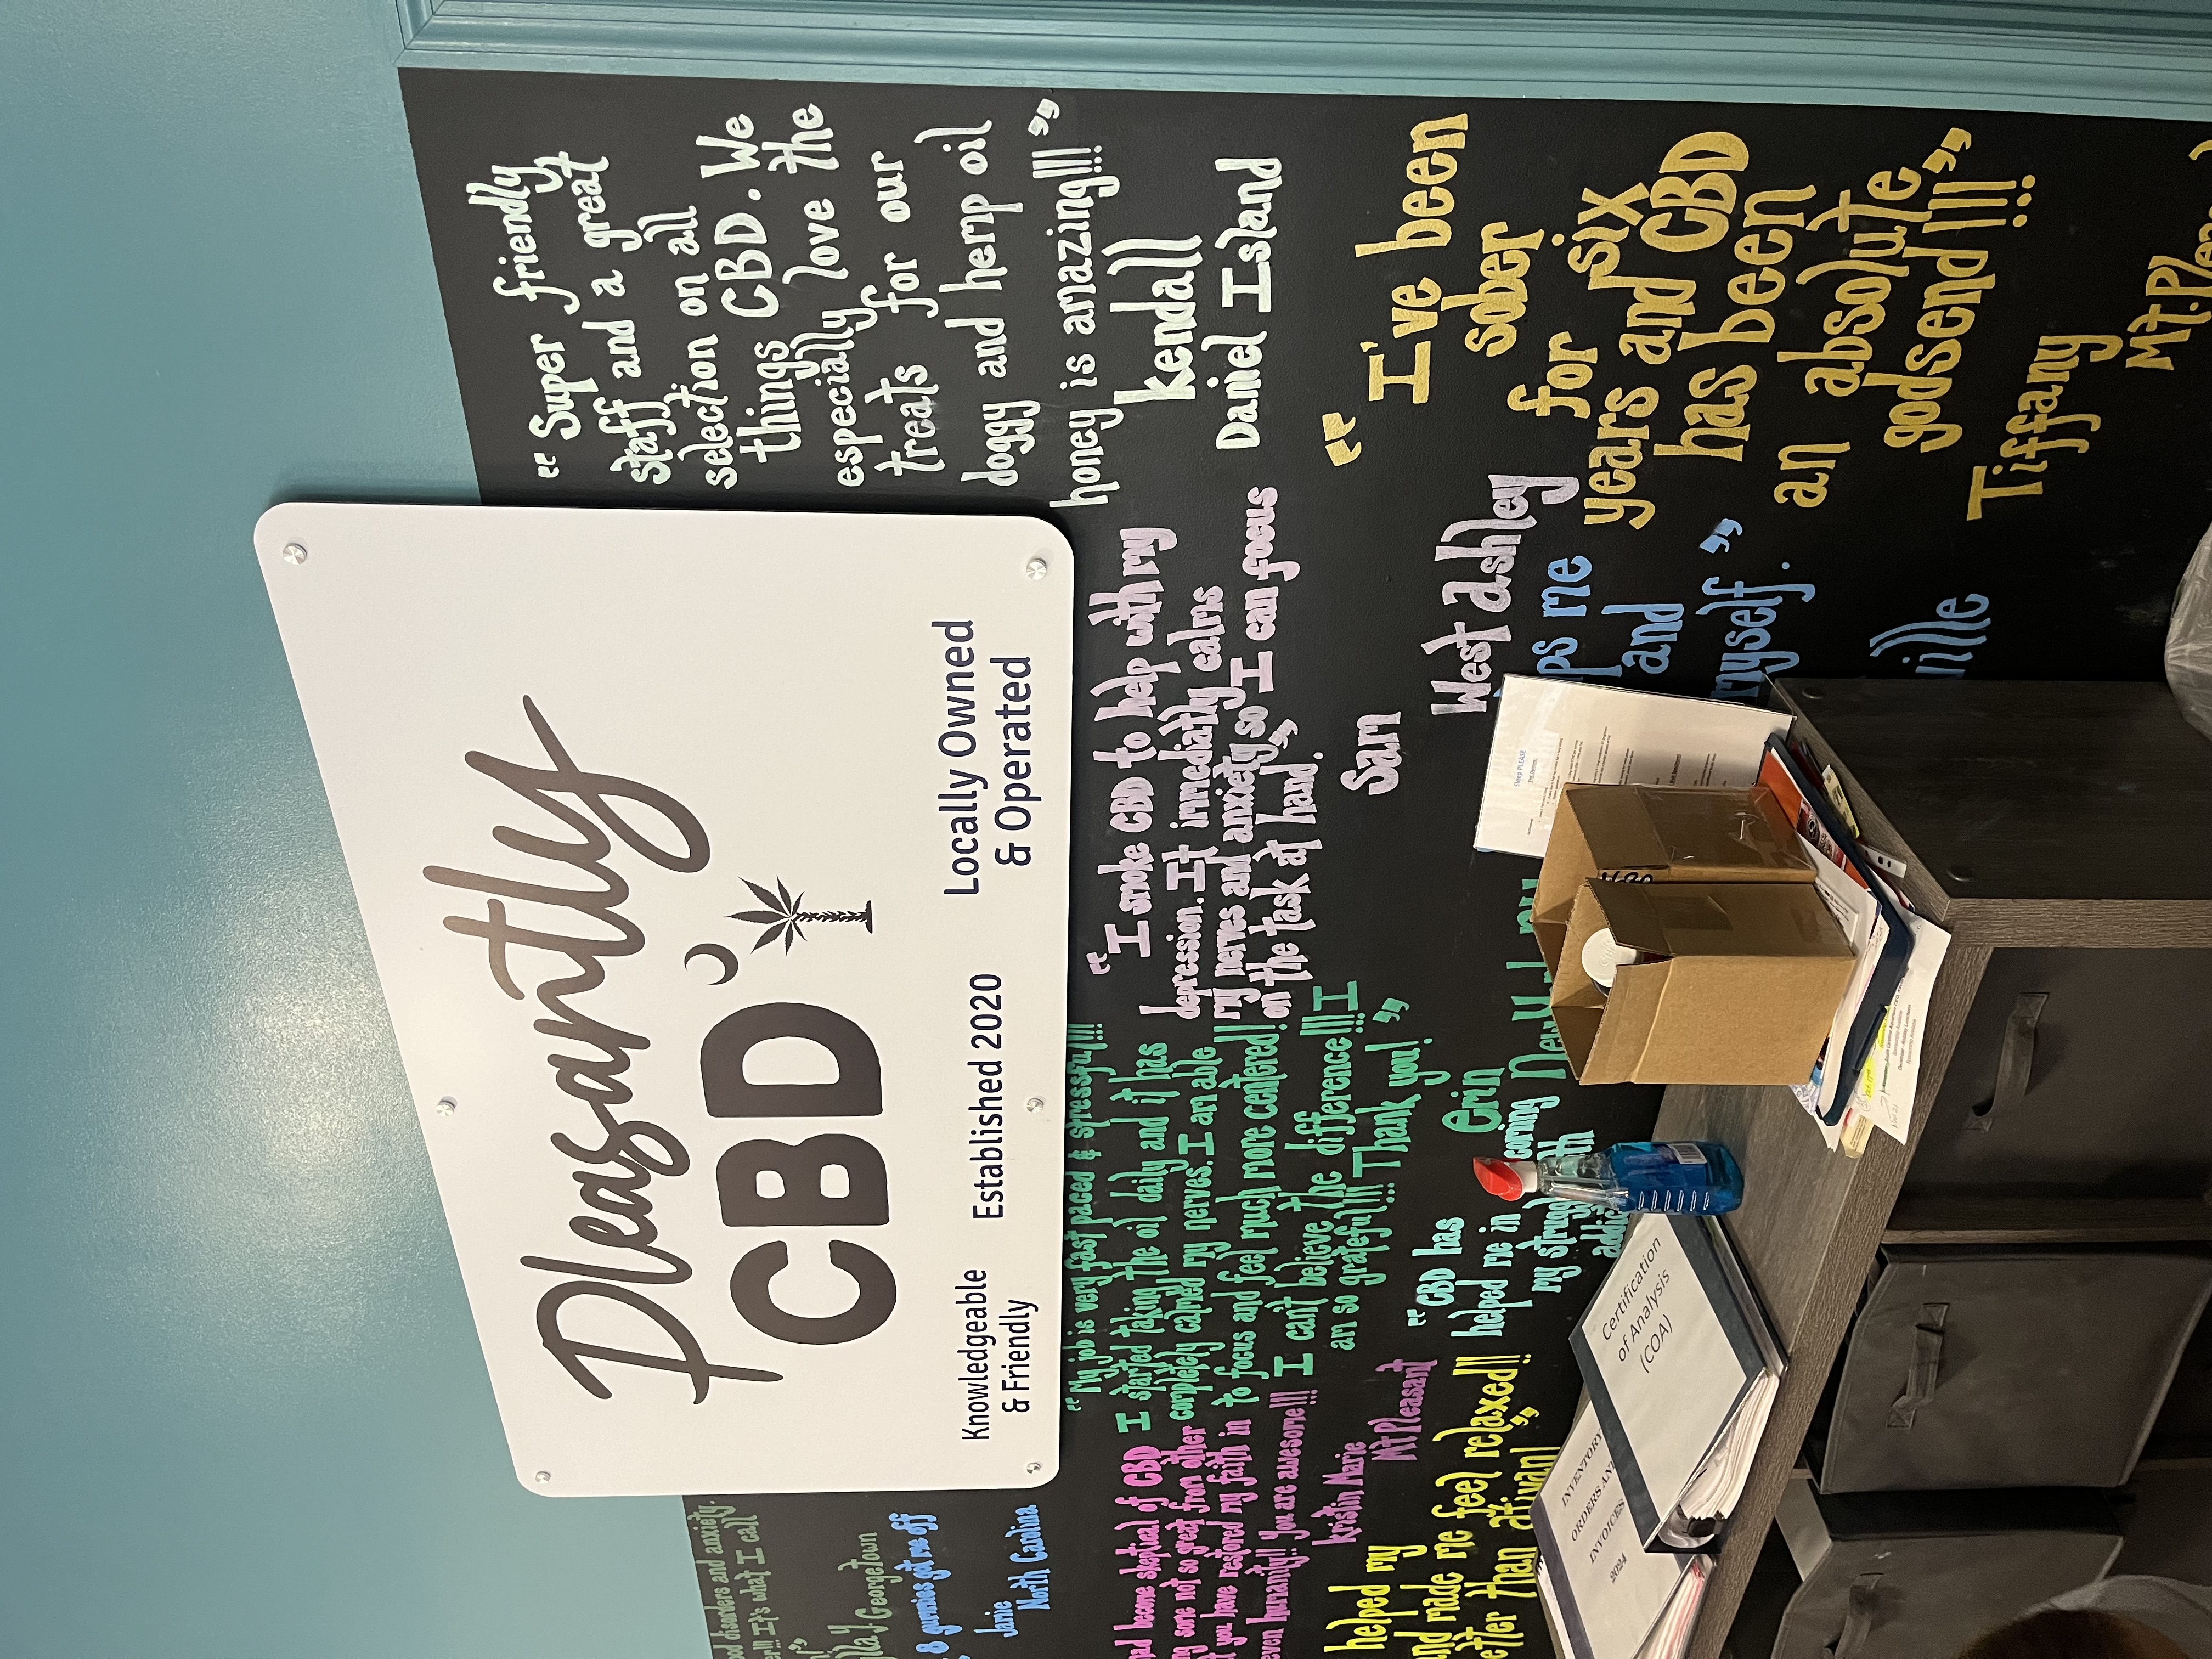 Pleasantly
CBD
Knowledgeable
& Friendly
Established 2020
Locally Owned
& Operated
"Super friendly
staff and a great
selection on all
things CBD. We
especially love the
treats for our
doggy and hemp oil
honey is amazing!!!"
Kendall
Daniel Island
"I smoke CBD to help with my
depression. It immediatly calms
my nerves and anxiety so I can focus
on the task at hand."
Sam
West Ashley
"I've been
sober
for six
years and CBD
has been
an absolute
godsend!!!"
Tiffany
"My job is very fast paced & stressful!!!!
I started taking the oil daily and it has
completely calmed my nerves. I am able
to focus and feel much more centered!
I can't believe the difference!!! I
am so grateful!!! Thank you!"
Erin
ood disorders and anxiety.
er!!! It's what I call
Georgetown
8 gummies got me off
Janie
North Carolina
had become skeptical of CBD
ng some not so great from other
t you have restored my faith in
even humanity!! You are awesome!!!
Kristin Marie
Mt Pleasant
helped my
and made me feel relaxed!!
etter than ativan!"
"CBD has
helped me in
coming
my struggle
addic
ps me
and
myself."
ville
Sleep PLEASE
Certification
of Analysis
(COA)
INVENTORY
ORDERS AN
INVOICES
2024